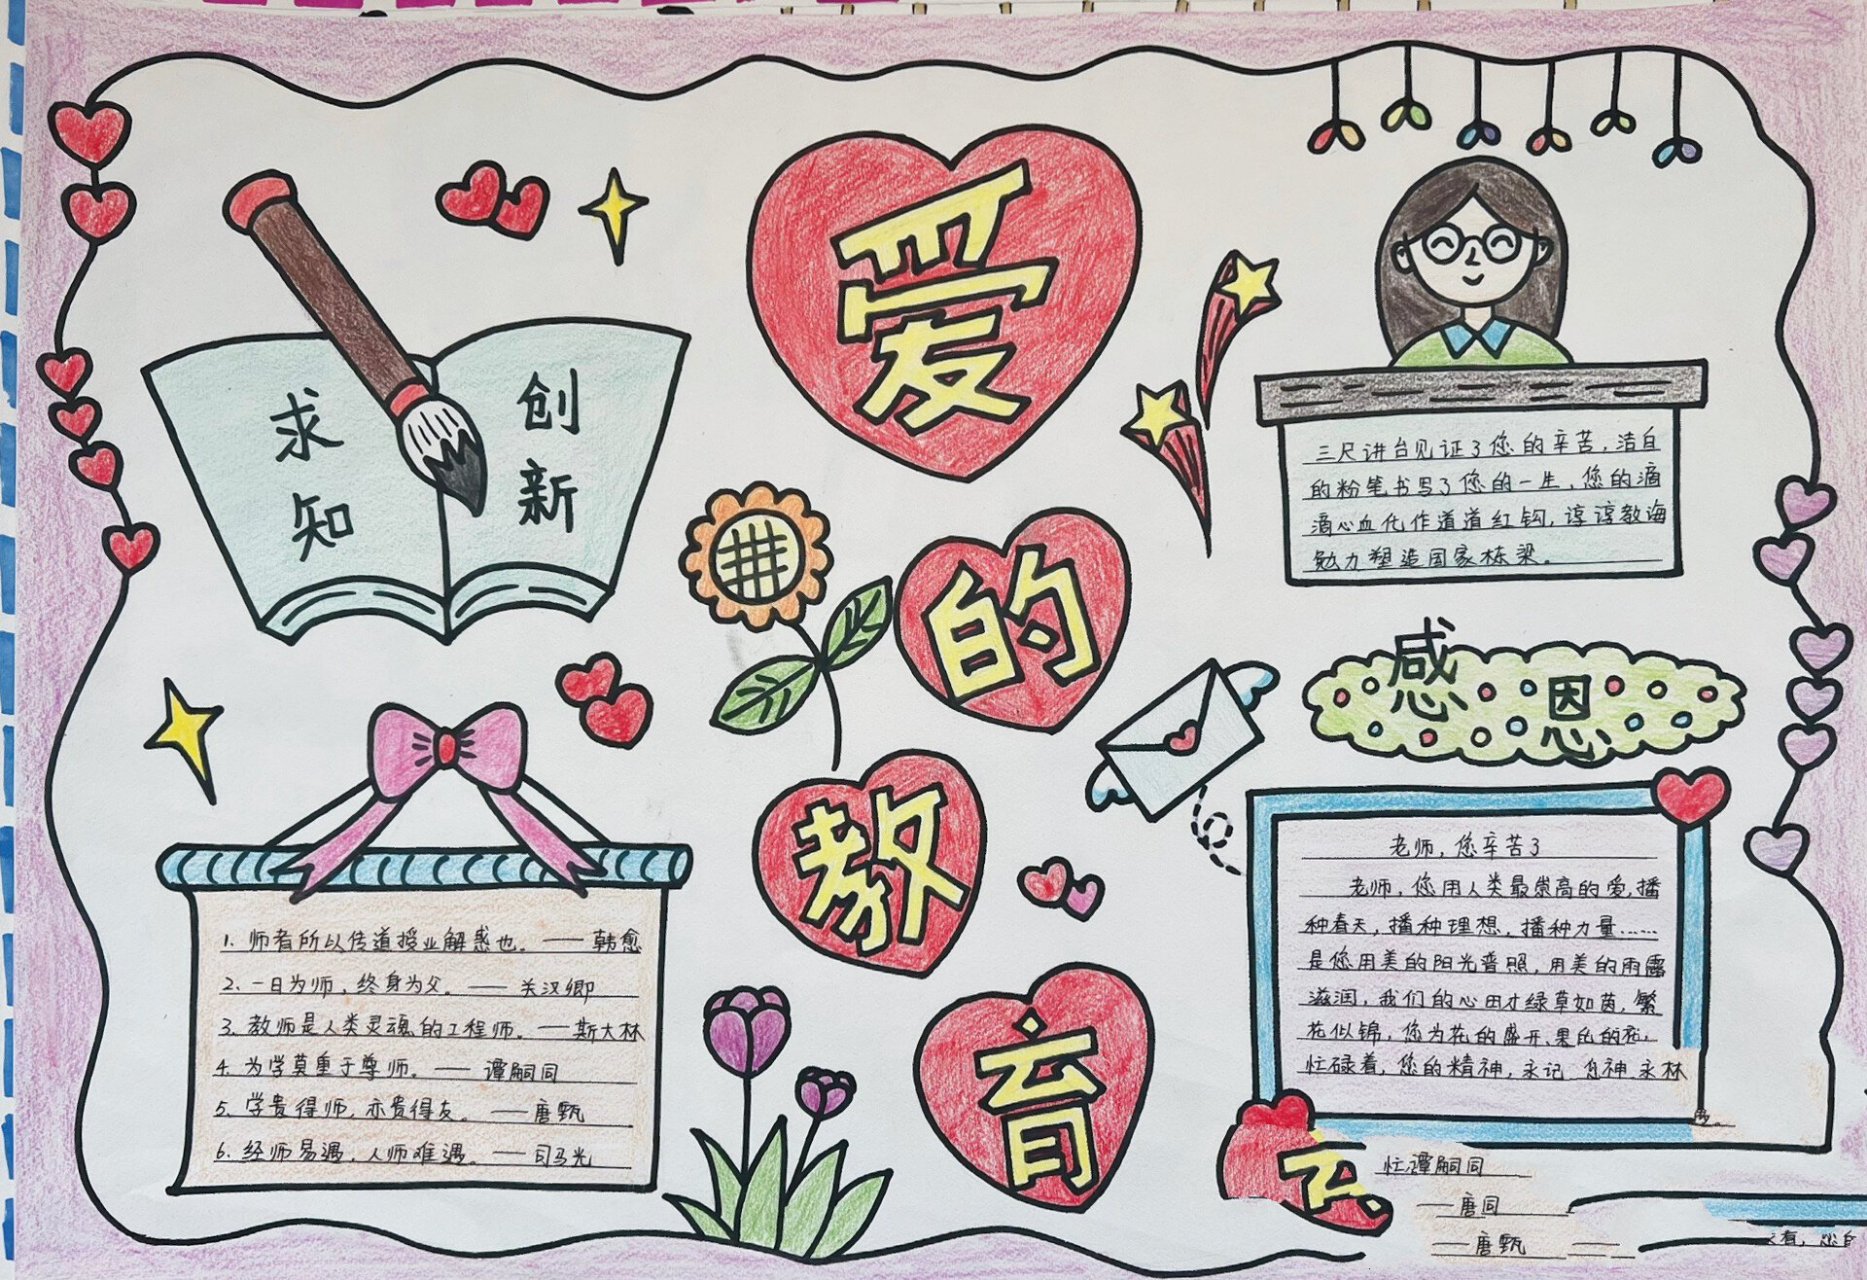 爱的教育
求知
创新
三尺讲台见证了您的辛苦,洁白
的粉笔书写了您的一生,您的滴
滴心血化作道道红钩,谆谆教诲
勉力塑造国家栋梁。
感恩
老师,您辛苦了
老师,您用人类最崇高的爱,播
种春天,播种理想,播种力量……
是您用美的阳光普照,用美的雨露
滋润,我们的心田才绿草如茵,繁
花似锦,您为花的盛开、果的
忙碌着,您的精神,永记
1. 师者所以传道授业解惑也。——韩愈
2. 一日为师,终身为父。——关汉卿
3. 教师是人类灵魂的工程师。——斯大林
4. 为学莫重于尊师。——谭嗣同
5. 学贵得师,亦贵得友。——唐甄
6. 经师易遇,人师难遇。——司马光
忙谭嗣同
——唐同
——唐甄